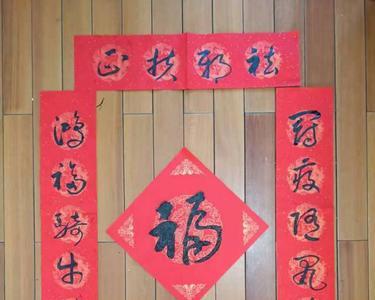 祛邪扶正
冠疫随鼠
鸿福骑牛
福